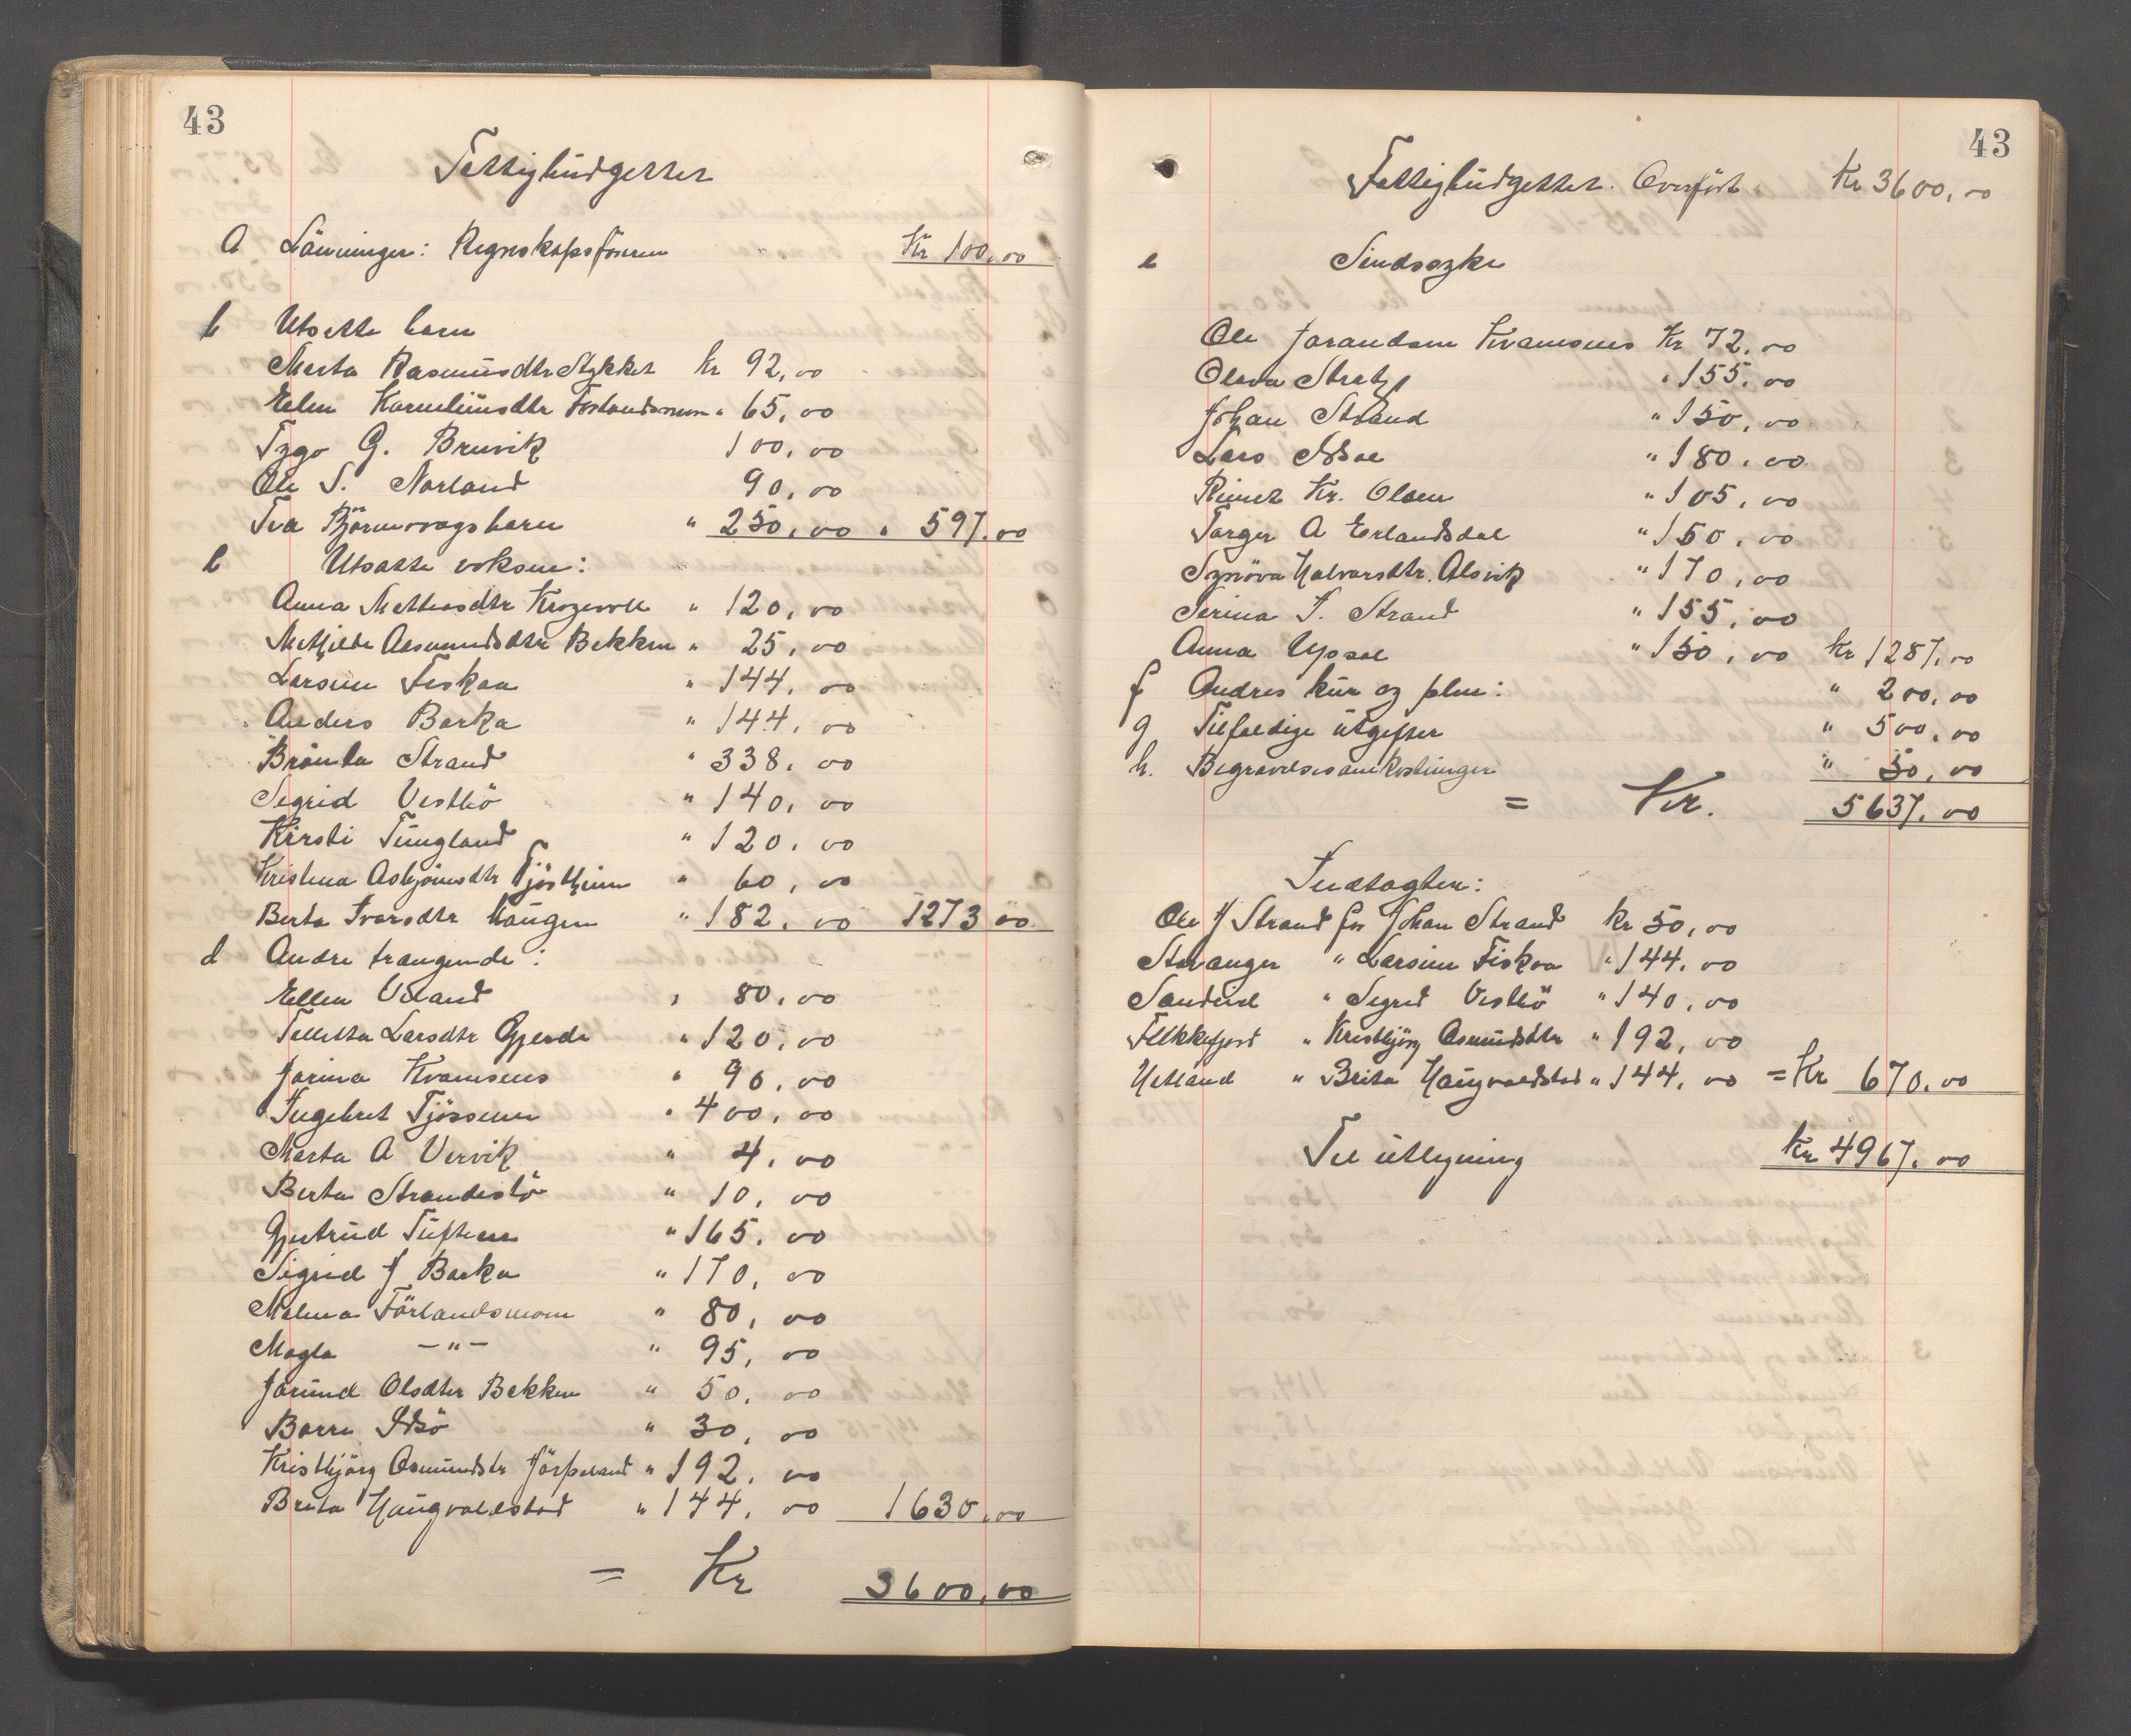 43
Fattigbudgettet
a Lønninger: Regnskapsføreren Kr 100,00
b Utsatte barn
Marta Rasmusdtr Stykket kr 92,00
Elen Korneliusdtr Forlandsmoen " 65,00
Tygo G. Bruvik 100,00
Ole S. Norland 90,00
Tva Björnevagsbarn " 250,00 " 597.00
Utsatte voksne:
Anna Mathiasdtr " 120,00
Mathilde Aasmundsdtr Bekken " 25,00
Larsine Fiskaa " 144,00
Anders Barka " 144,00
Strand " 338,00
Sigrid Vestbö " 140,00
Kirsti Tungland " 120,00
Kristina Asbjörnsdtr Tjöstheim " 60,00
Berta Ivarsdtr Haugen " 182,00 1273 00
d Andre trængende:
Ellen Veland " 80,00
Larsdtr Gjerde " 120,00
Jorina Kvamsnes " 90,00
Ingebret Tjössem " 400,00
Marta A Vervik " 4,00
Berta Strandeslö " 10,00
Gjertrud Tuftene " 165,00
Sigrid J Barka " 170,00
Malena Förlandsmoen " 80,00
Magla —"— " 95,00
Jorund Olsdtr Bekken " 50,00
Barre Idsö " 30,00
Kristbjörg Asmundstr Jörpeland " 192,00
Brita Haugvaldstad " 144,00 1630,00
= Kr 3600,00
43
Fattigbudgettet. Overfört. Kr 3600,00
e Sindssyke
Ole Jorandsen Kvamsnes Kr 72,00
Olava " 155,00
Johan Strand " 150,00
Lars Idsal " 180,00
Kr. Olsen " 105,00
Torger A Erlandsdal " 150,00
Synöva Halvorsdtr. Alsvik " 170,00
Serina T. Strand " 155,00
Anna Upsal " 150,00 kr 1287,00
f Andres kur og pleie: " 200,00
g Tilfældige utgifter " 500,00
h. Begravelsesomkostninger " 50,00
= Kr. 5637,00
Indtægter:
Ole J Strand for Johan Strand kr 50,00
Stavanger " Larsine Fiskaa " 144,00
Sandeid " Sigrid Vestbö " 140,00
Flekkefjord " Kristbjörg Asmundsdtr " 192,00
Hetland " Brita Haugvaldstad " 144,00 = Kr 670,00
Til utligning kr 4967,00